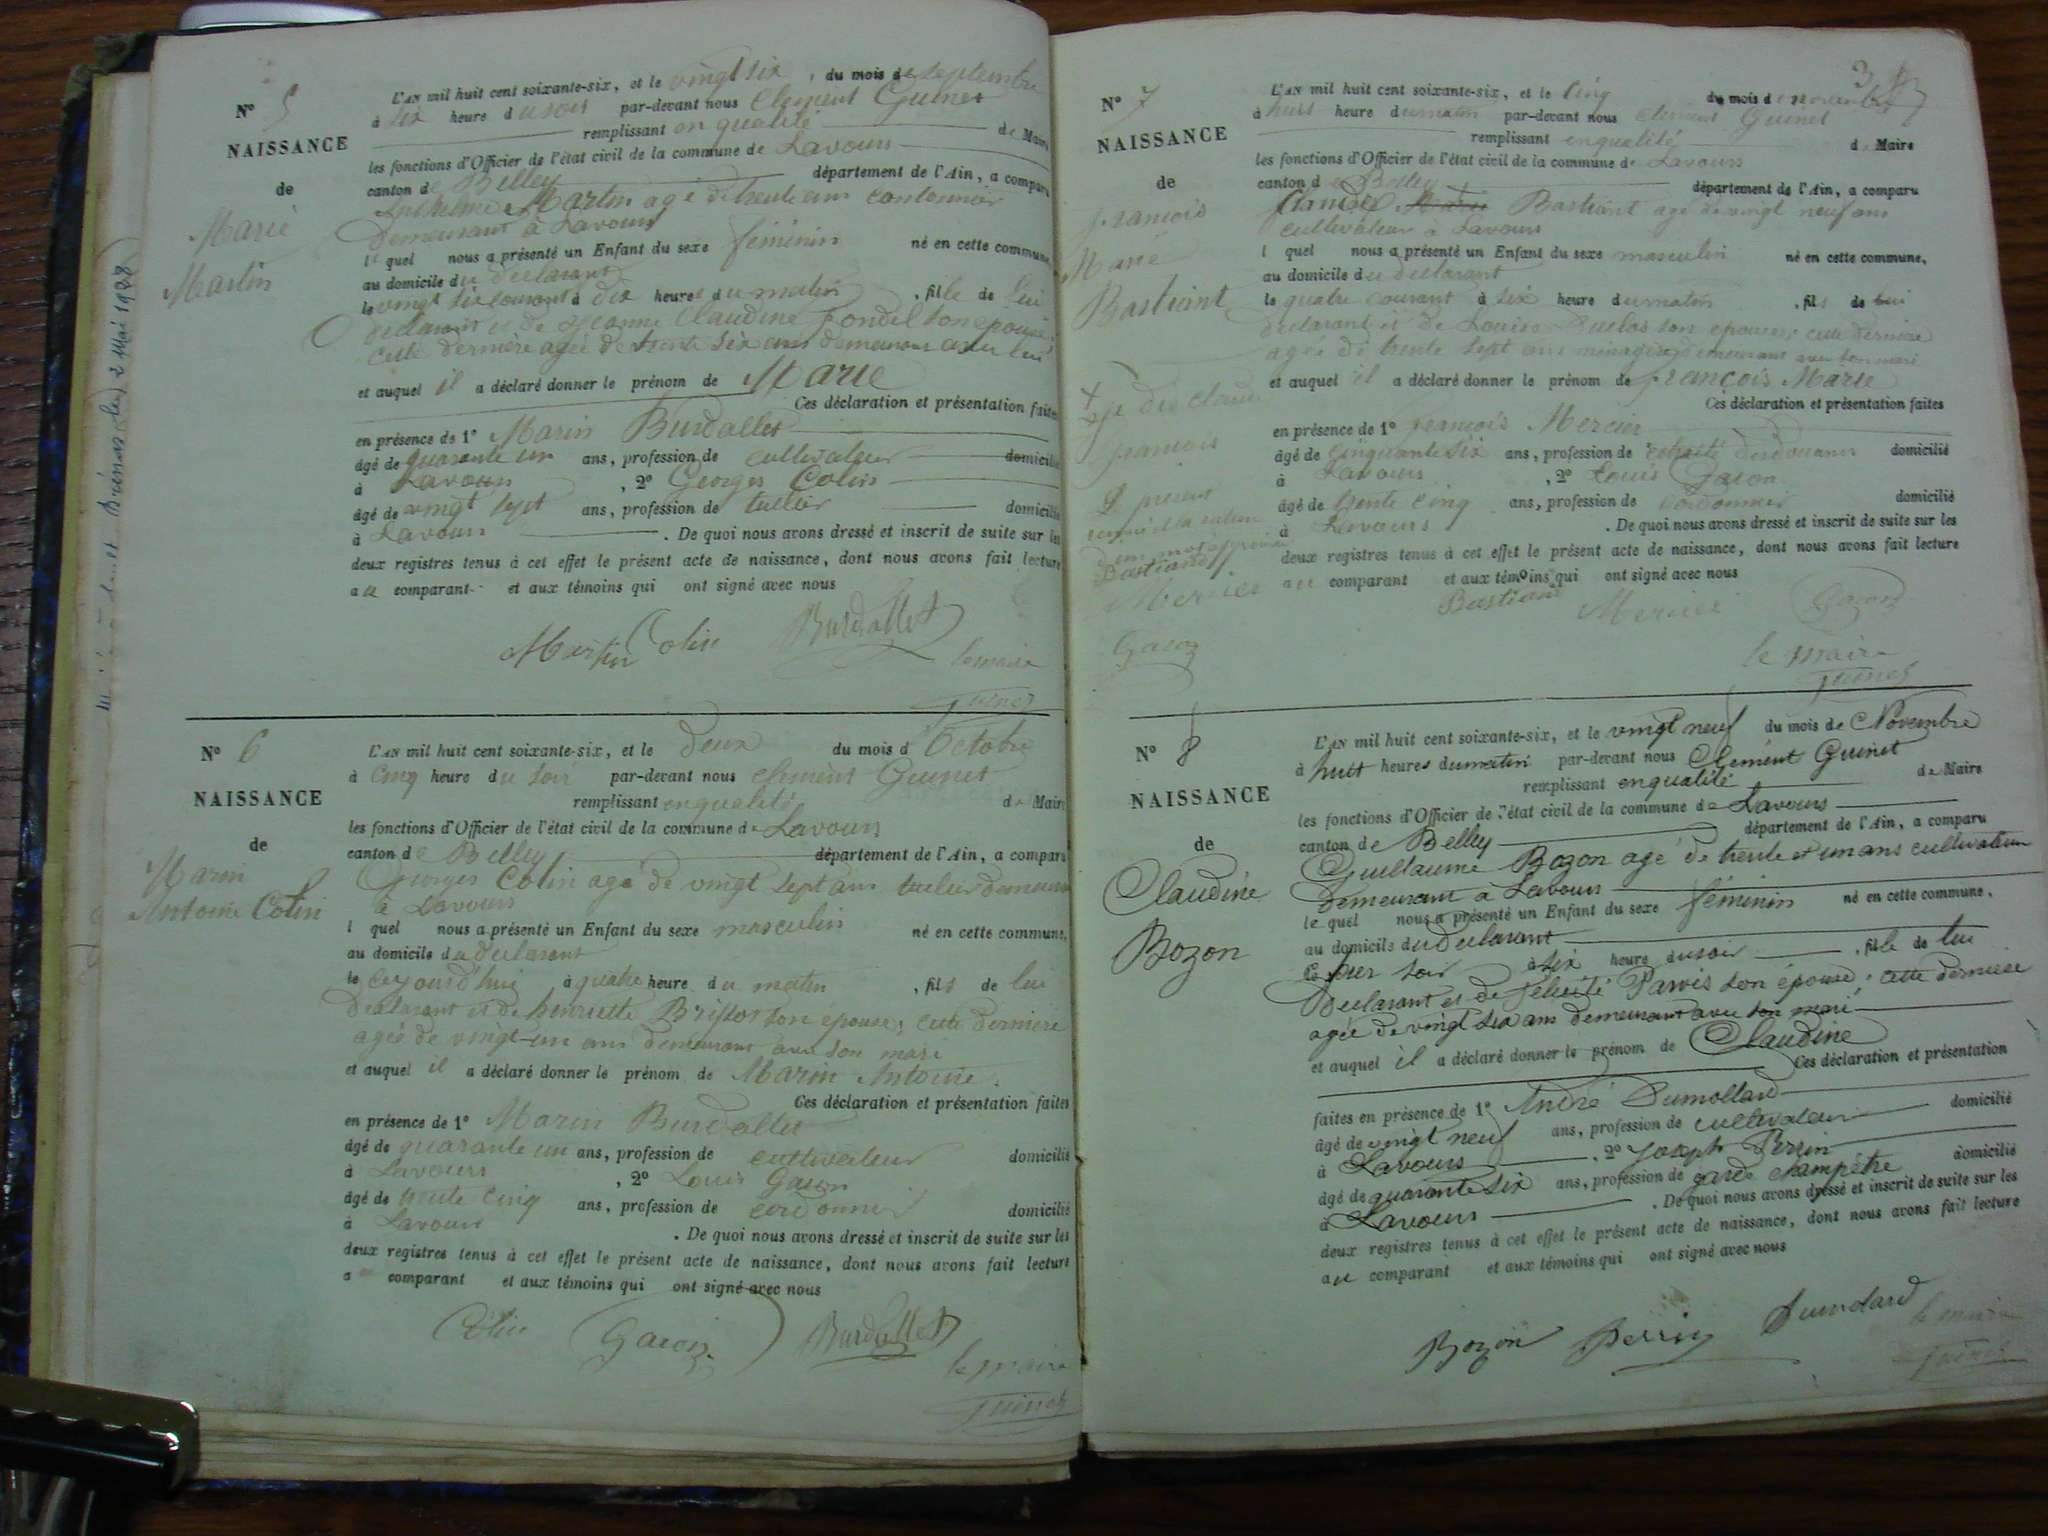 N° 5
NAISSANCE
de
Marie
Martin
décédée à Brénas le 2 Mai 1928
L'AN mil huit cent soixante-six, et le vingt six, du mois de septembre
à six heure du soir par-devant nous Clement Guinet
remplissant en qualité de Maire
les fonctions d'Officier de l'état civil de la commune de Lavours
canton de Belley département de l'Ain, a comparu
Anthelme Martin agé de trente ans cantonnier
demeurant à Lavours
lequel nous a présenté un Enfant du sexe féminin né en cette commune,
au domicile du déclarant
le vingt six courant à dix heures du matin, fille de lui
déclarant et de Jeanne Claudine Fondel son épouse,
cette dernière agée de trente six ans demeurant avec lui
et auquel il a déclaré donner le prénom de Marie
Ces déclaration et présentation faites
en présence de 1° Marin Burdallet
âgé de quarante un ans, profession de cultivateur domicilié
à Lavours, 2° Georges Colin
âgé de vingt sept ans, profession de tuilier domicilié
à Lavours. De quoi nous avons dressé et inscrit de suite sur les
deux registres tenus à cet effet le présent acte de naissance, dont nous avons fait lecture
au comparant et aux témoins qui ont signé avec nous
Martin Colin Burdallet
le maire
Guinet
N° 6
NAISSANCE
de
Marin
Antoine Colin
L'AN mil huit cent soixante-six, et le deux du mois d'Octobre
à cinq heure du soir par-devant nous clement Guinet
remplissant en qualité de Maire
les fonctions d'Officier de l'état civil de la commune de Lavours
canton de Belley département de l'Ain, a comparu
Georges Colin age de vingt sept ans tuilier demeurant
à Lavours
lquel nous a présenté un Enfant du sexe masculin né en cette commune,
au domicile du déclarant
le cejourd'hui à quatre heure du matin, fils de lui
déclarant et de henriette son epouse; cette derniere
agée de vingt-un ans demeurant avec son mari
et auquel il a déclaré donner le prénom de Marin Antoine.
Ces déclaration et présentation faites
en présence de 1° Marin Burdallet
âgé de quarante un ans, profession de cultivateur domicilié
à Lavours, 2° Louis Gacon
âgé de trente cinq ans, profession de cordonnier domicilié
à Lavours. De quoi nous avons dressé et inscrit de suite sur les
deux registres tenus à cet effet le présent acte de naissance, dont nous avons fait lecture
a comparant et aux témoins qui ont signé avec nous
Colin Gacon Burdallet
le maire
Guinet
3
N° 7
NAISSANCE
de
françois
Marie
Bastiant
je dis claude
françois
Bastiand
Mercier
Gacon
L'AN mil huit cent soixante-six, et le cinq du mois de novembre
à huit heure du matin par-devant nous clement Guinet
remplissant en qualité de Maire
les fonctions d'Officier de l'état civil de la commune de Lavours
canton de Belley département de l'Ain, a comparu
Bastiant agé de vingt neuf ans
cultivateur à Lavours
lquel nous a présenté un Enfant du sexe masculin né en cette commune,
au domicile du déclarant
le quatre courant à six heure du matin, fils de lui
déclarant et de Louise Duclos son epouse; cette derniere
agée de trente sept ans ménagère demeurant avec son mari
et auquel il a déclaré donner le prénom de françois Marie
Ces déclaration et présentation faites
en présence de 1° françois Mercier
âgé de cinquante six ans, profession de retraité des douanes domicilié
à Lavours, 2° Louis Gacon
âgé de trente cinq ans, profession de cordonnier domicilié
à Lavours. De quoi nous avons dressé et inscrit de suite sur les
deux registres tenus à cet effet le présent acte de naissance, dont nous avons fait lecture
au comparant et aux témoins qui ont signé avec nous
Bastiand Mercier Gacon
le maire
Guinet
N° 8
NAISSANCE
de
Claudine
Bozon
L'AN mil huit cent soixante-six, et le vingt neuf du mois de Novembre
à huit heures du matin par-devant nous Clément Guinet
remplissant en qualité de Maire
les fonctions d'Officier de l'état civil de la commune de Lavours
canton de Belley département de l'Ain, a comparu
Guillaume Bozon agé de trente et un ans cultivateur
demeurant à Lavours
lequel nous a présenté un Enfant du sexe féminin né en cette commune,
au domicile du déclarant
le hier soir à six heure du soir, fille de lui
déclarant et de félicité Parvis son épouse; cette derniere
agée de vingt six ans demeurant avec son mari
et auquel il a déclaré donner le prénom de Claudine
Ces déclaration et présentation
faites en présence de 1° André Dumollard
âgé de vingt neuf ans, profession de cultivateur domicilié
à Lavours, 2° Joseph Perrin
âgé de quarante six ans, profession de garde champêtre domicilié
à Lavours. De quoi nous avons dressé et inscrit de suite sur les
deux registres tenus à cet effet le présent acte de naissance, dont nous avons fait lecture
au comparant et aux témoins qui ont signé avec nous
Bozon Perrin Dumolard
le maire
Guinet